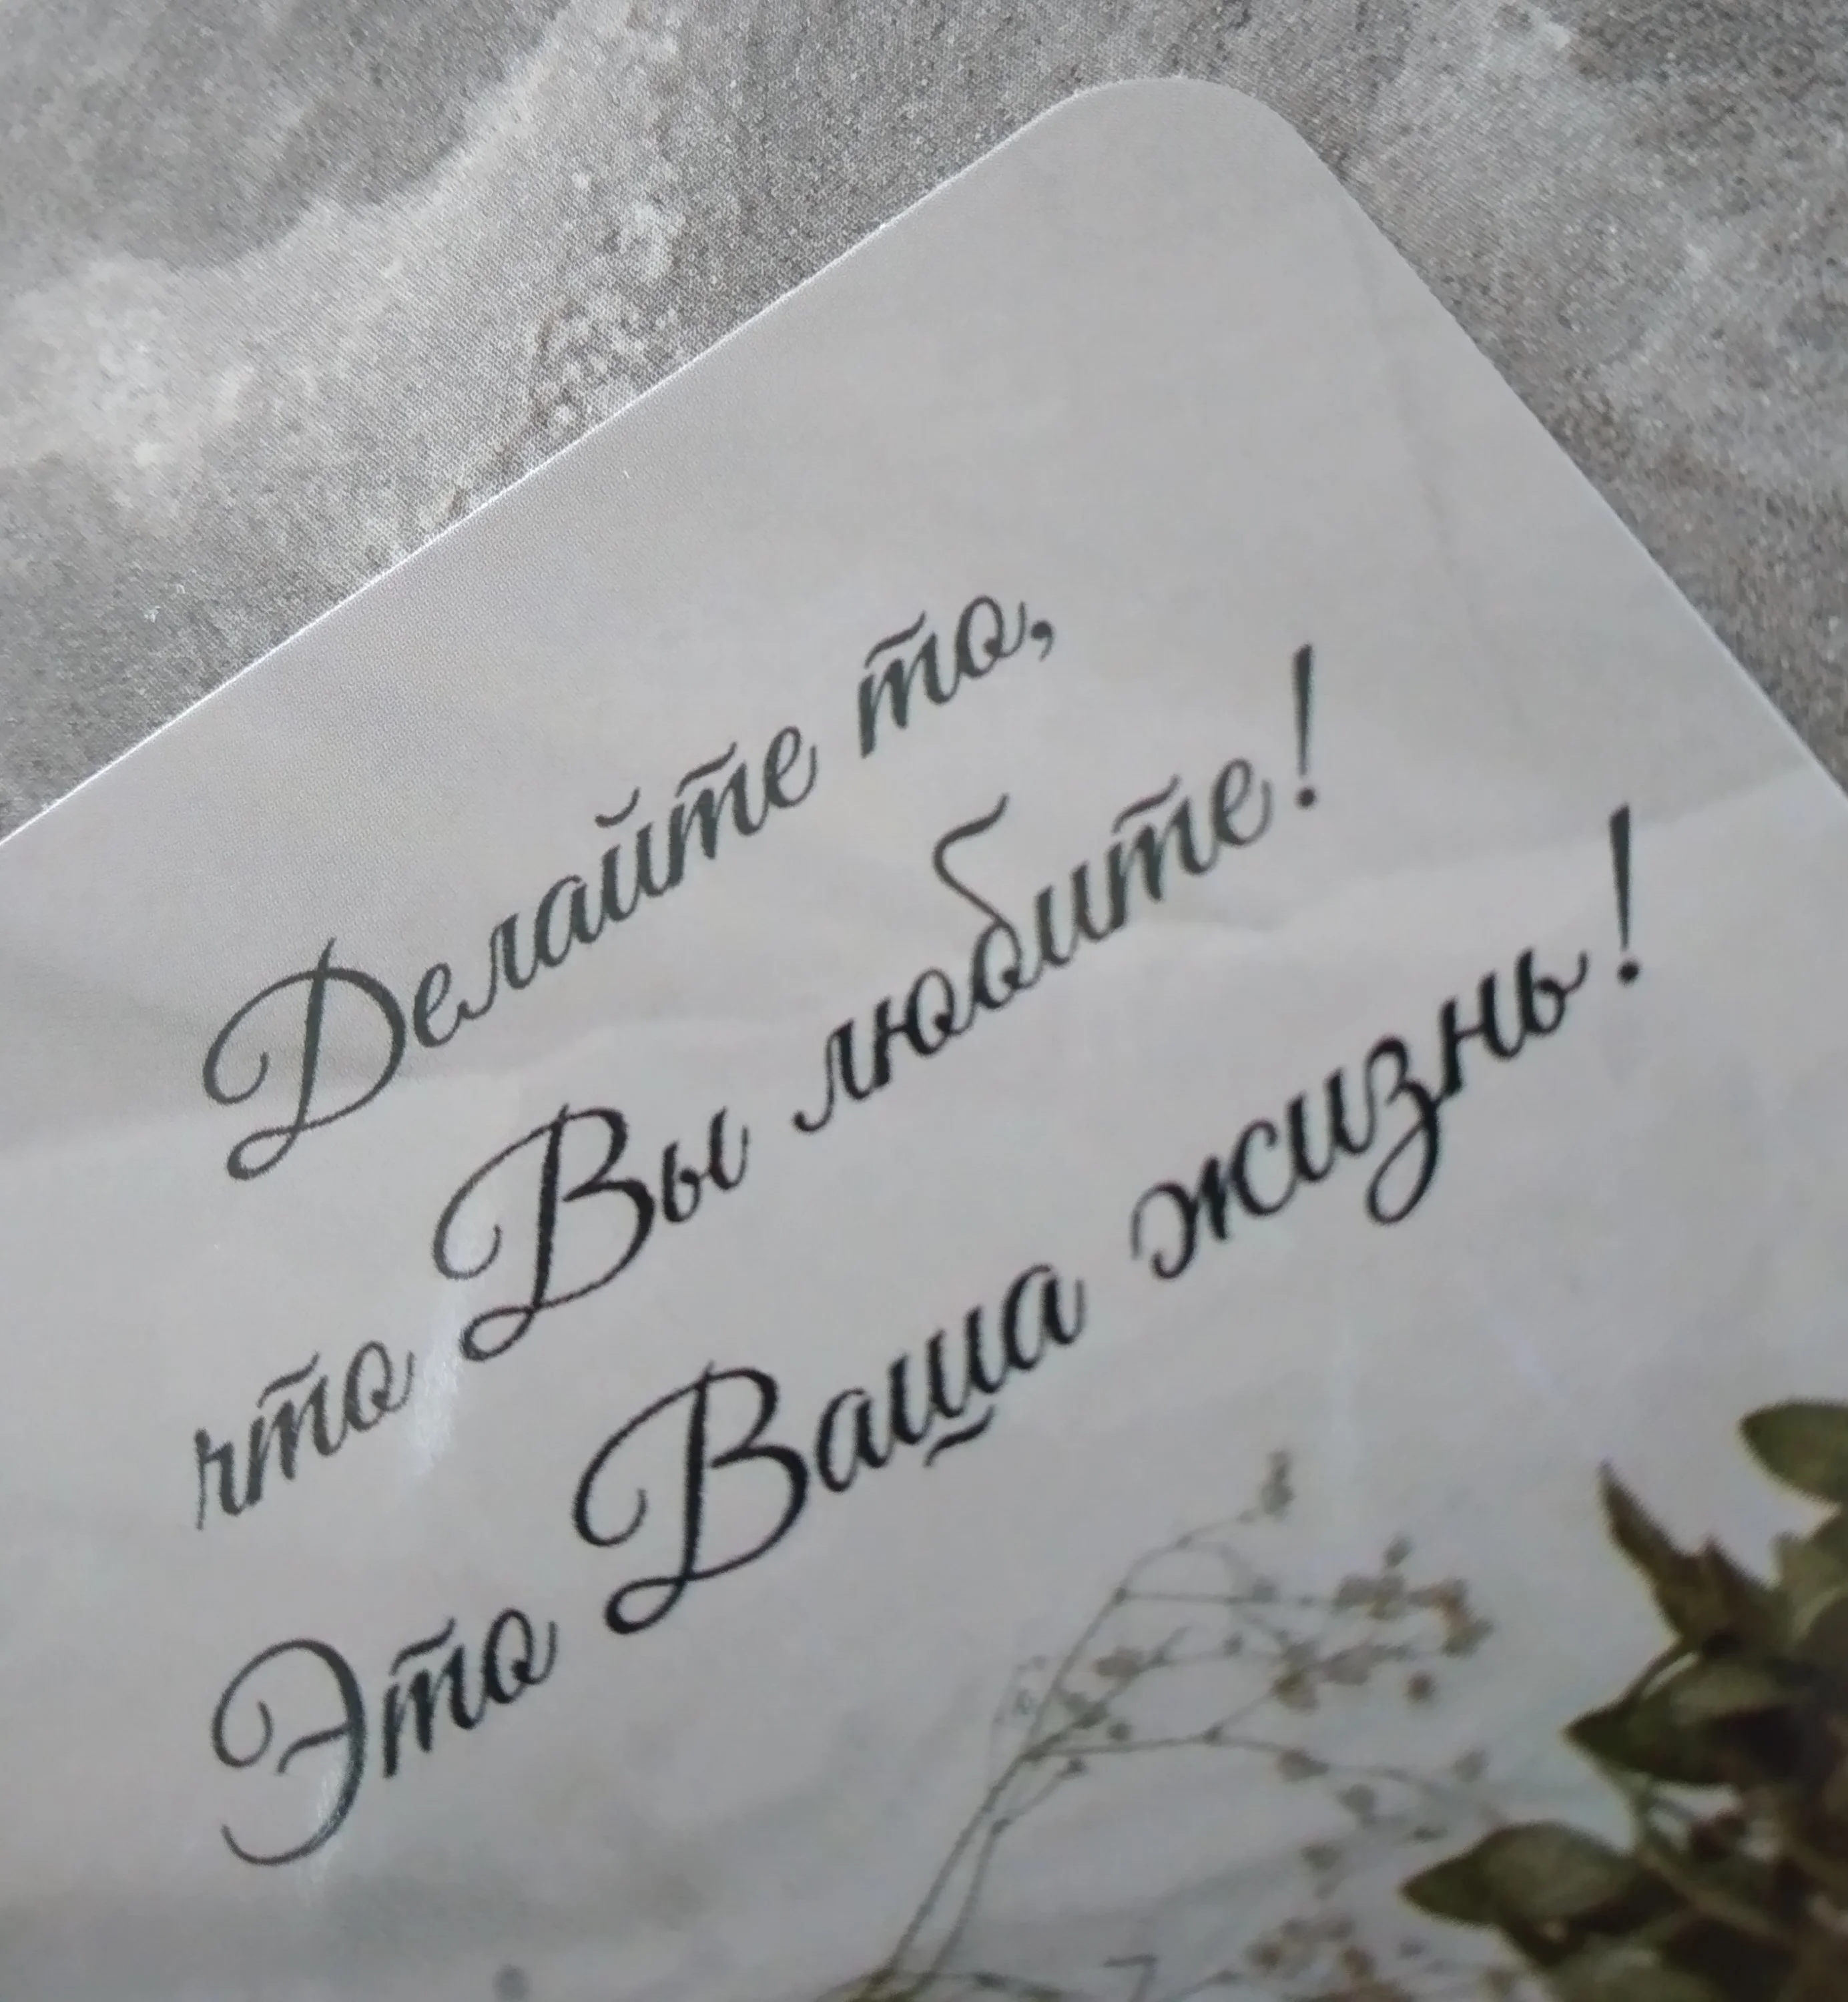 Делайте то,
что Вы любите!
Это Ваша жизнь!